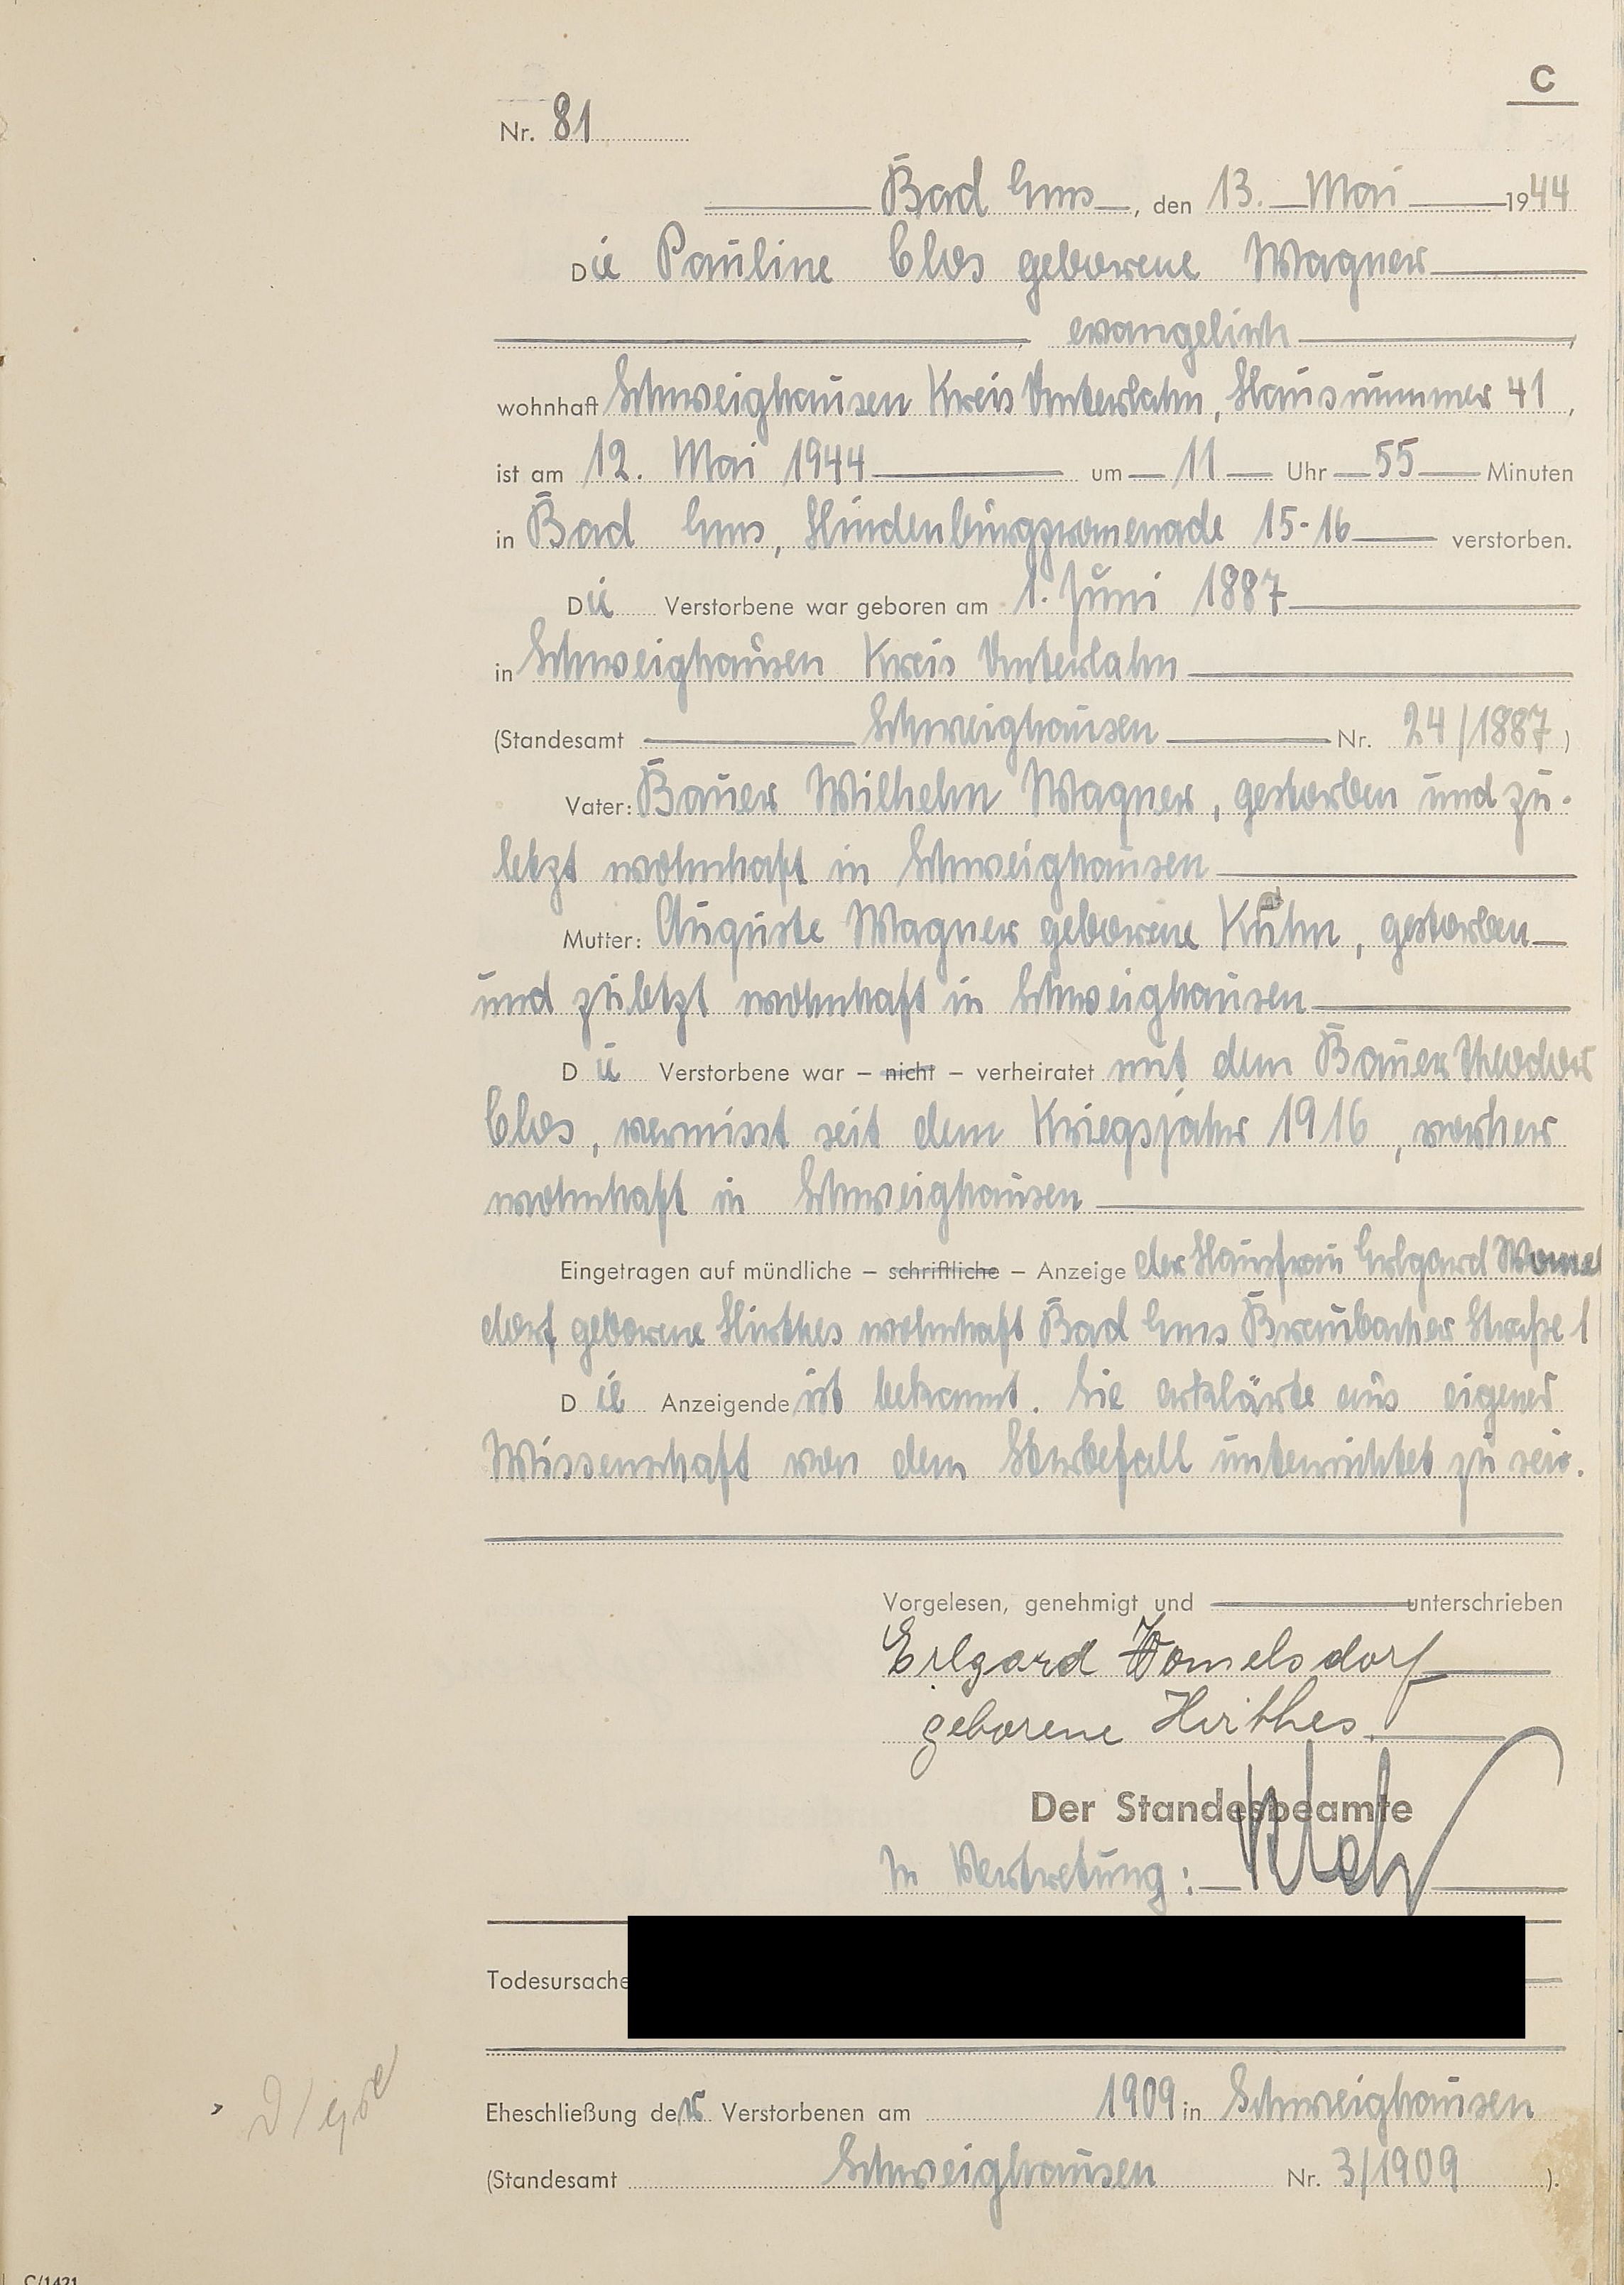 C
Nr. 81
Bad Ems, den 13. Mai 1944
Die Pauline Clos geborene Wagner
evangelisch,
wohnhaft Schweighausen Kreis Unterlahn, Hausnummer 41,
ist am 12. Mai 1944 um 11 Uhr 55 Minuten
in Bad Ems, Hindenburgpromenade 15-16 verstorben.
Die Verstorbene war geboren am 1. Juni 1887
in Schweighausen Kreis Unterlahn
(Standesamt Schweighausen Nr. 24/1887)
Vater: Bauer Wilhelm Wagner, gestorben und zu-
letzt wohnhaft in Schweighausen
Mutter: Auguste Wagner geborene Kuhn, gestorben
und zuletzt wohnhaft in Schweighausen
Die Verstorbene war – nicht – verheiratet mit dem Bauer Theodor
Clos, vermisst seit dem Kriegsjahr 1916, vorher
wohnhaft in Schweighausen
Eingetragen auf mündliche – schriftliche – Anzeige der Hausfrau Erlgard Womels
dorf geborene Hirthes wohnhaft Bad Ems Braubacher Straße 1
Die Anzeigende ist bekannt. Sie erklärte aus eigener
Wissenschaft von dem Sterbefall unterrichtet zu sein.
Vorgelesen, genehmigt und unterschrieben
Erlgard Womelsdorf
geborene Hirthes.
Der Standesbeamte
In Vertretung:
Todesursache
Eheschließung der Verstorbenen am 1909 in Schweighausen
(Standesamt Schweighausen Nr. 3/1909).
C/1421